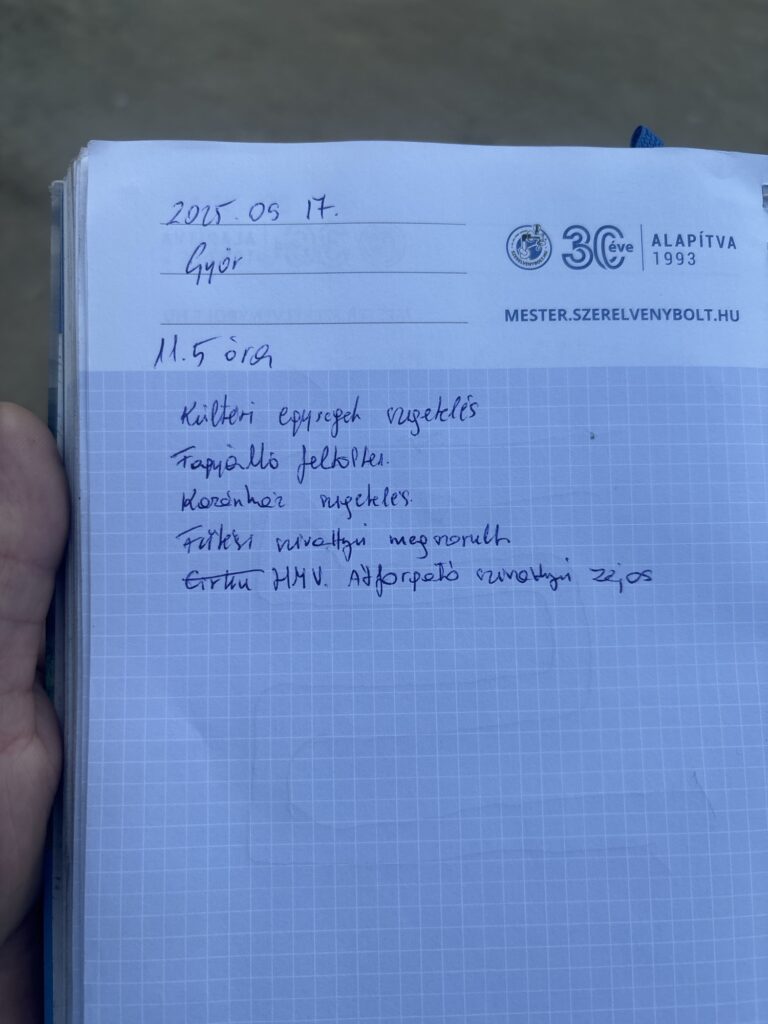 2025. 09 17.
Győr
SZERELVENYBOLT.HU
30 éve
ALAPÍTVA
1993
MESTER.SZERELVENYBOLT.HU
11.5 óra
Kültéri egysegek szigetelés
Fagyálló feltöltes.
Kazánház szigetelés.
Fűtési szivattyú megszorult
Cirku HMV. Átforgató szivattyú zajos